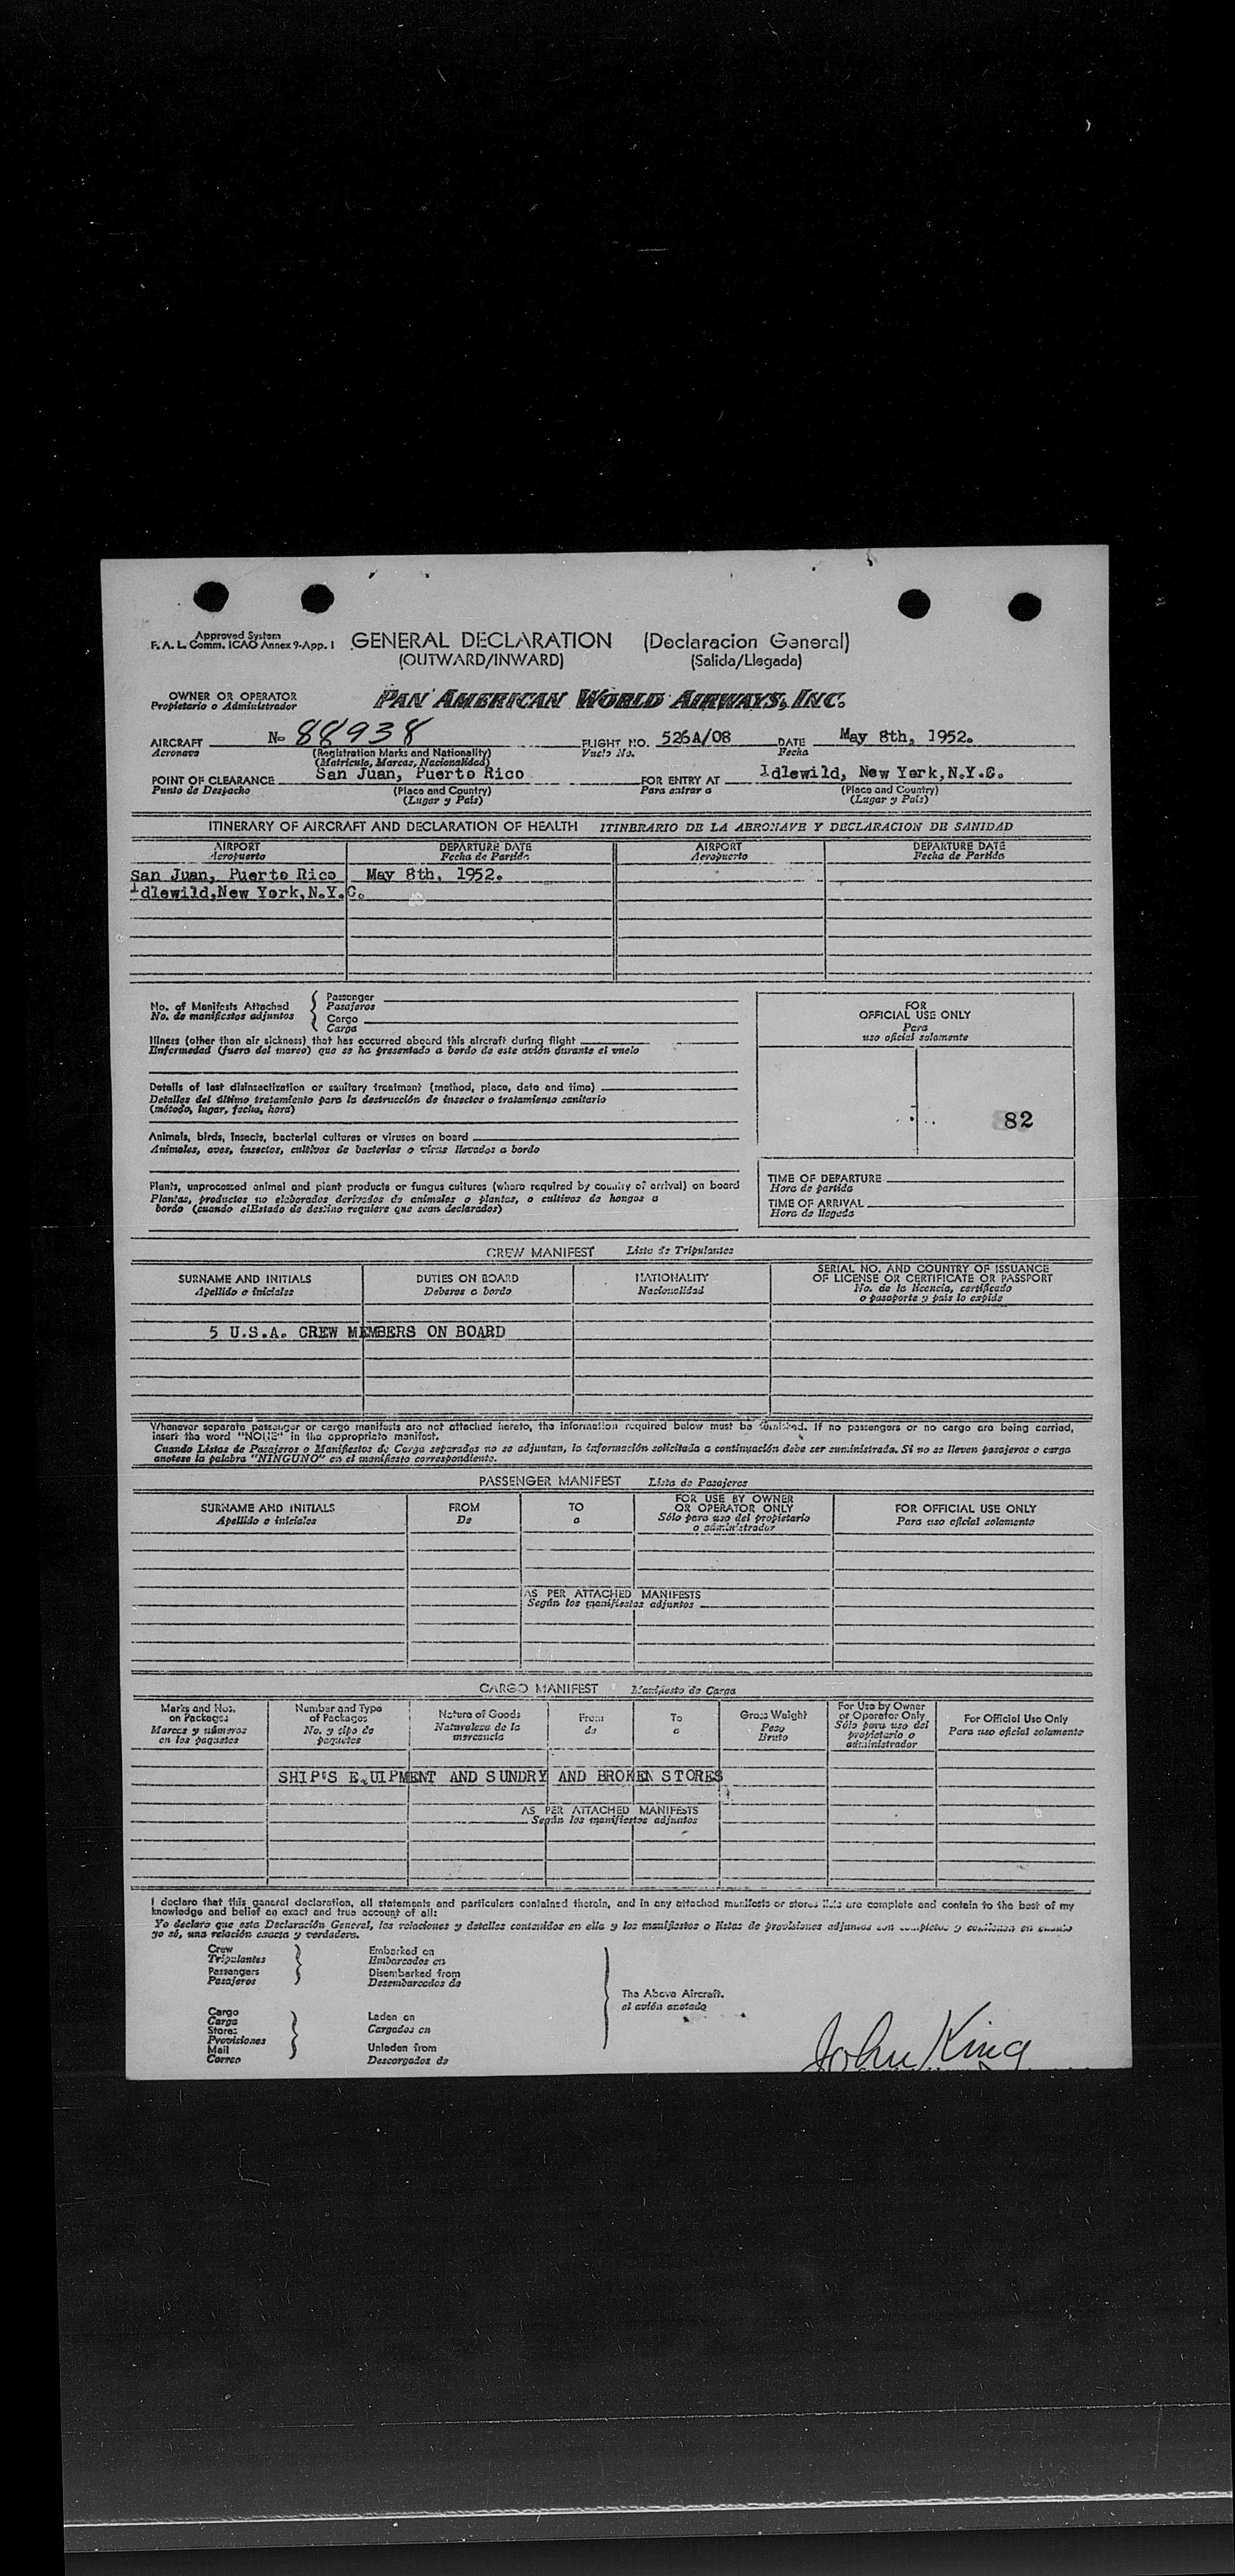 Approved System
F. A. L. Comm. ICAO Annex 9-App. I
GENERAL DECLARATION (Declaracion General)
(OUTWARD/INWARD) (Salida/Llegada)
OWNER OR OPERATOR
Propietario o Administrador
PAN AMERICAN WORLD AIRWAYS, INC.
AIRCRAFT N- 88938 FLIGHT NO. 526A/08 DATE May 8th, 1952.
Aeronave (Registration Marks and Nationality) Vuelo No. Fecha
(Matricula, Marcas, Nacionalidad)
POINT OF CLEARANCE San Juan, Puerto Rico FOR ENTRY AT Idlewild, New York, N.Y.C.
Punto de Despacho (Place and Country) Para entrar a (Place and Country)
(Lugar y País) (Lugar y País)
ITINERARY OF AIRCRAFT AND DECLARATION OF HEALTH ITINERARIO DE LA AERONAVE Y DECLARACION DE SANIDAD
AIRPORT DEPARTURE DATE AIRPORT DEPARTURE DATE
Aeropuerto Fecha de Partida Aeropuerto Fecha de Partida
San Juan, Puerto Rico May 8th, 1952.
Idlewild, New York, N.Y.C.
No. of Manifests Attached
No. de manifiestos adjuntos
Passenger
Pasajeros
Cargo
Carga
Illness (other than air sickness) that has occurred aboard this aircraft during flight
Enfermedad (fuera del mareo) que se ha presentado a bordo de este avión durante el vuelo
Details of last disinsectization or sanitary treatment (method, place, date and time)
Detalles del último tratamiento para la destrucción de insectos o tratamiento sanitario
(método, lugar, fecha, hora)
Animals, birds, insects, bacterial cultures or viruses on board
Animales, aves, insectos, cultivos de bacterias o virus llevados a bordo
Plants, unprocessed animal and plant products or fungus cultures (where required by country of arrival) on board
Plantas, productos no elaborados derivados de animales o plantas, o cultivos de hongos a
bordo (cuando el Estado de destino requiere que sean declarados)
FOR
OFFICIAL USE ONLY
Para
uso oficial solamente
82
TIME OF DEPARTURE
Hora de partida
TIME OF ARRIVAL
Hora de llegada
CREW MANIFEST Lista de Tripulantes
SURNAME AND INITIALS DUTIES ON BOARD NATIONALITY SERIAL NO. AND COUNTRY OF ISSUANCE
OF LICENSE OR CERTIFICATE OR PASSPORT
Apellido e iniciales Deberes a bordo Nacionalidad No. de la licencia, certificado
o pasaporte y país lo expide
5 U.S.A. CREW MEMBERS ON BOARD
Whenever separate passenger or cargo manifests are not attached hereto, the information required below must be furnished. If no passengers or no cargo are being carried,
insert the word "NONE" in the appropriate manifest.
Cuando Listas de Pasajeros o Manifiestos de Carga separados no se adjuntan, la información solicitada a continuación debe ser suministrada. Si no se lleven pasajeros o carga
anotese la palabra "NINGUNO" en el manifiesto correspondiente.
PASSENGER MANIFEST Lista de Pasajeros
SURNAME AND INITIALS FROM TO FOR USE BY OWNER
OR OPERATOR ONLY FOR OFFICIAL USE ONLY
Apellido e iniciales De a Sólo para uso del propietario
o administrador Para uso oficial solamente
AS PER ATTACHED MANIFESTS
Según los manifiestos adjuntos
CARGO MANIFEST Manifiesto de Carga
Marks and Nos.
on Packages
Marcas y números
en los paquetes
Number and Type
of Packages
No. y tipo de
paquetes
Nature of Goods
Naturaleza de la
mercancia
From
de
To
a
Gross Weight
Peso
Bruto
For Use by Owner
or Operator Only
Sólo para uso del
propietario o
administrador
For Official Use Only
Para uso oficial solamente
SHIP'S E.UIPMENT AND SUNDRY AND BROKEN STORES
AS PER ATTACHED MANIFESTS
Según los manifiestos adjuntos
I declare that this general declaration, all statements and particulars contained therein, and in any attached manifests or stores lists are complete and contain to the best of my
knowledge and belief an exact and true account of all:
Yo declaro que esta Declaración General, las relaciones y detalles contenidos en ella y los manifiestos o listas de provisiones adjuntos son completos y contienen en cuanto
yo sé, una relación exacta y verdadera.
Crew
Tripulantes
Passengers
Pasajeros
Embarked on
Embarcados en
Disembarked from
Desembarcados de
The Above Aircraft.
el avión anotado
Cargo
Carga
Stores
Provisiones
Mail
Correo
Laden on
Cargados en
Unladen from
Descargados de
John King